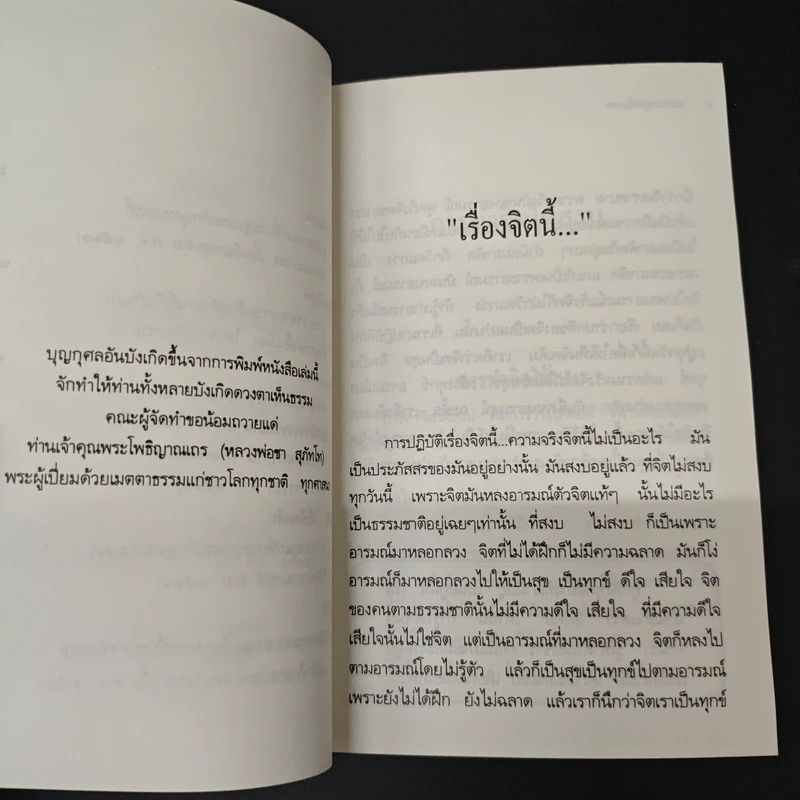 บุญกุศลอันบังเกิดขึ้นจากการพิมพ์หนังสือเล่มนี้
จักทำให้ท่านทั้งหลายบังเกิดดวงตาเห็นธรรม
คณะผู้จัดทำขอน้อมถวายแด่
ท่านเจ้าคุณพระโพธิญาณเถร (หลวงพ่อชา สุภัทโท)
พระผู้เปี่ยมด้วยเมตตาธรรมแก่ชาวโลกทุกชาติ
"เรื่องจิตนี้..."
การปฏิบัติเรื่องจิตนี้...ความจริงจิตนี้ไม่เป็นอะไร มัน
เป็นประภัสสรของมันอยู่อย่างนั้น มันสงบอยู่แล้ว ที่จิตไม่สงบ
ทุกวันนี้ เพราะจิตมันหลงอารมณ์ตัวจิตแท้ๆ นั้นไม่มีอะไร
เป็นธรรมชาติอยู่เฉยๆเท่านั้น ที่สงบ ไม่สงบ ก็เป็นเพราะ
อารมณ์มาหลอกลวง จิตที่ไม่ได้ฝึกก็ไม่มีความฉลาด มันก็โง่
อารมณ์ก็มาหลอกลวงไปให้เป็นสุข เป็นทุกข์ ดีใจ เสียใจ จิต
ของคนตามธรรมชาตินั้นไม่มีความดีใจ เสียใจ ที่มีความดีใจ
เสียใจนั้นไม่ใช่จิต แต่เป็นอารมณ์ที่มาหลอกลวง จิตก็หลงไป
ตามอารมณ์โดยไม่รู้ตัว แล้วก็เป็นสุขเป็นทุกข์ไปตามอารมณ์
เพราะยังไม่ได้ฝึก ยังไม่ฉลาด แล้วเราก็นึกว่าจิตเราเป็นทุกข์